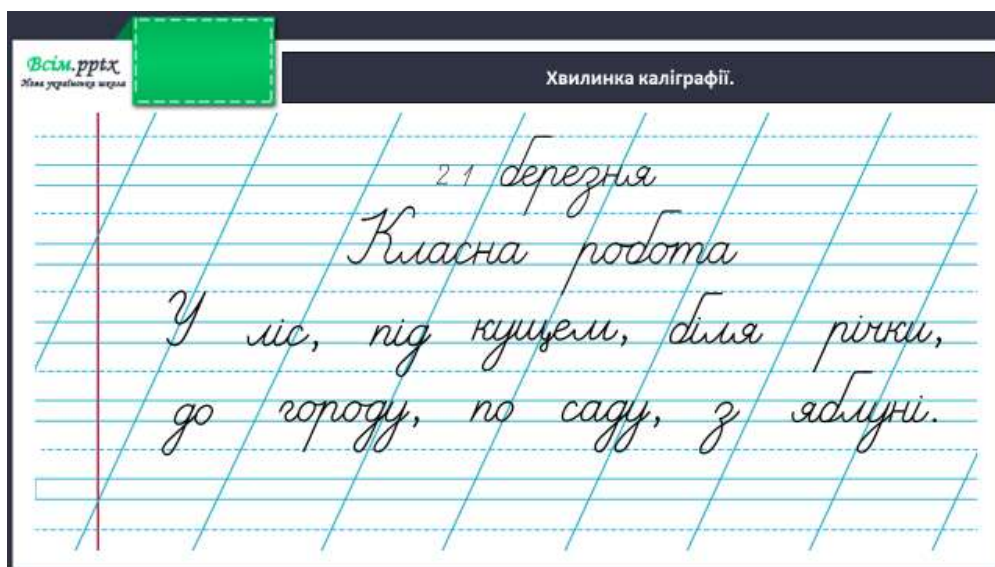 Всім.pptx
Нова українська школа
Хвилинка каліграфії.
21 березня
Класна робота
У ліс, під кущем, біля річки,
до городу, по саду, з яблуні.